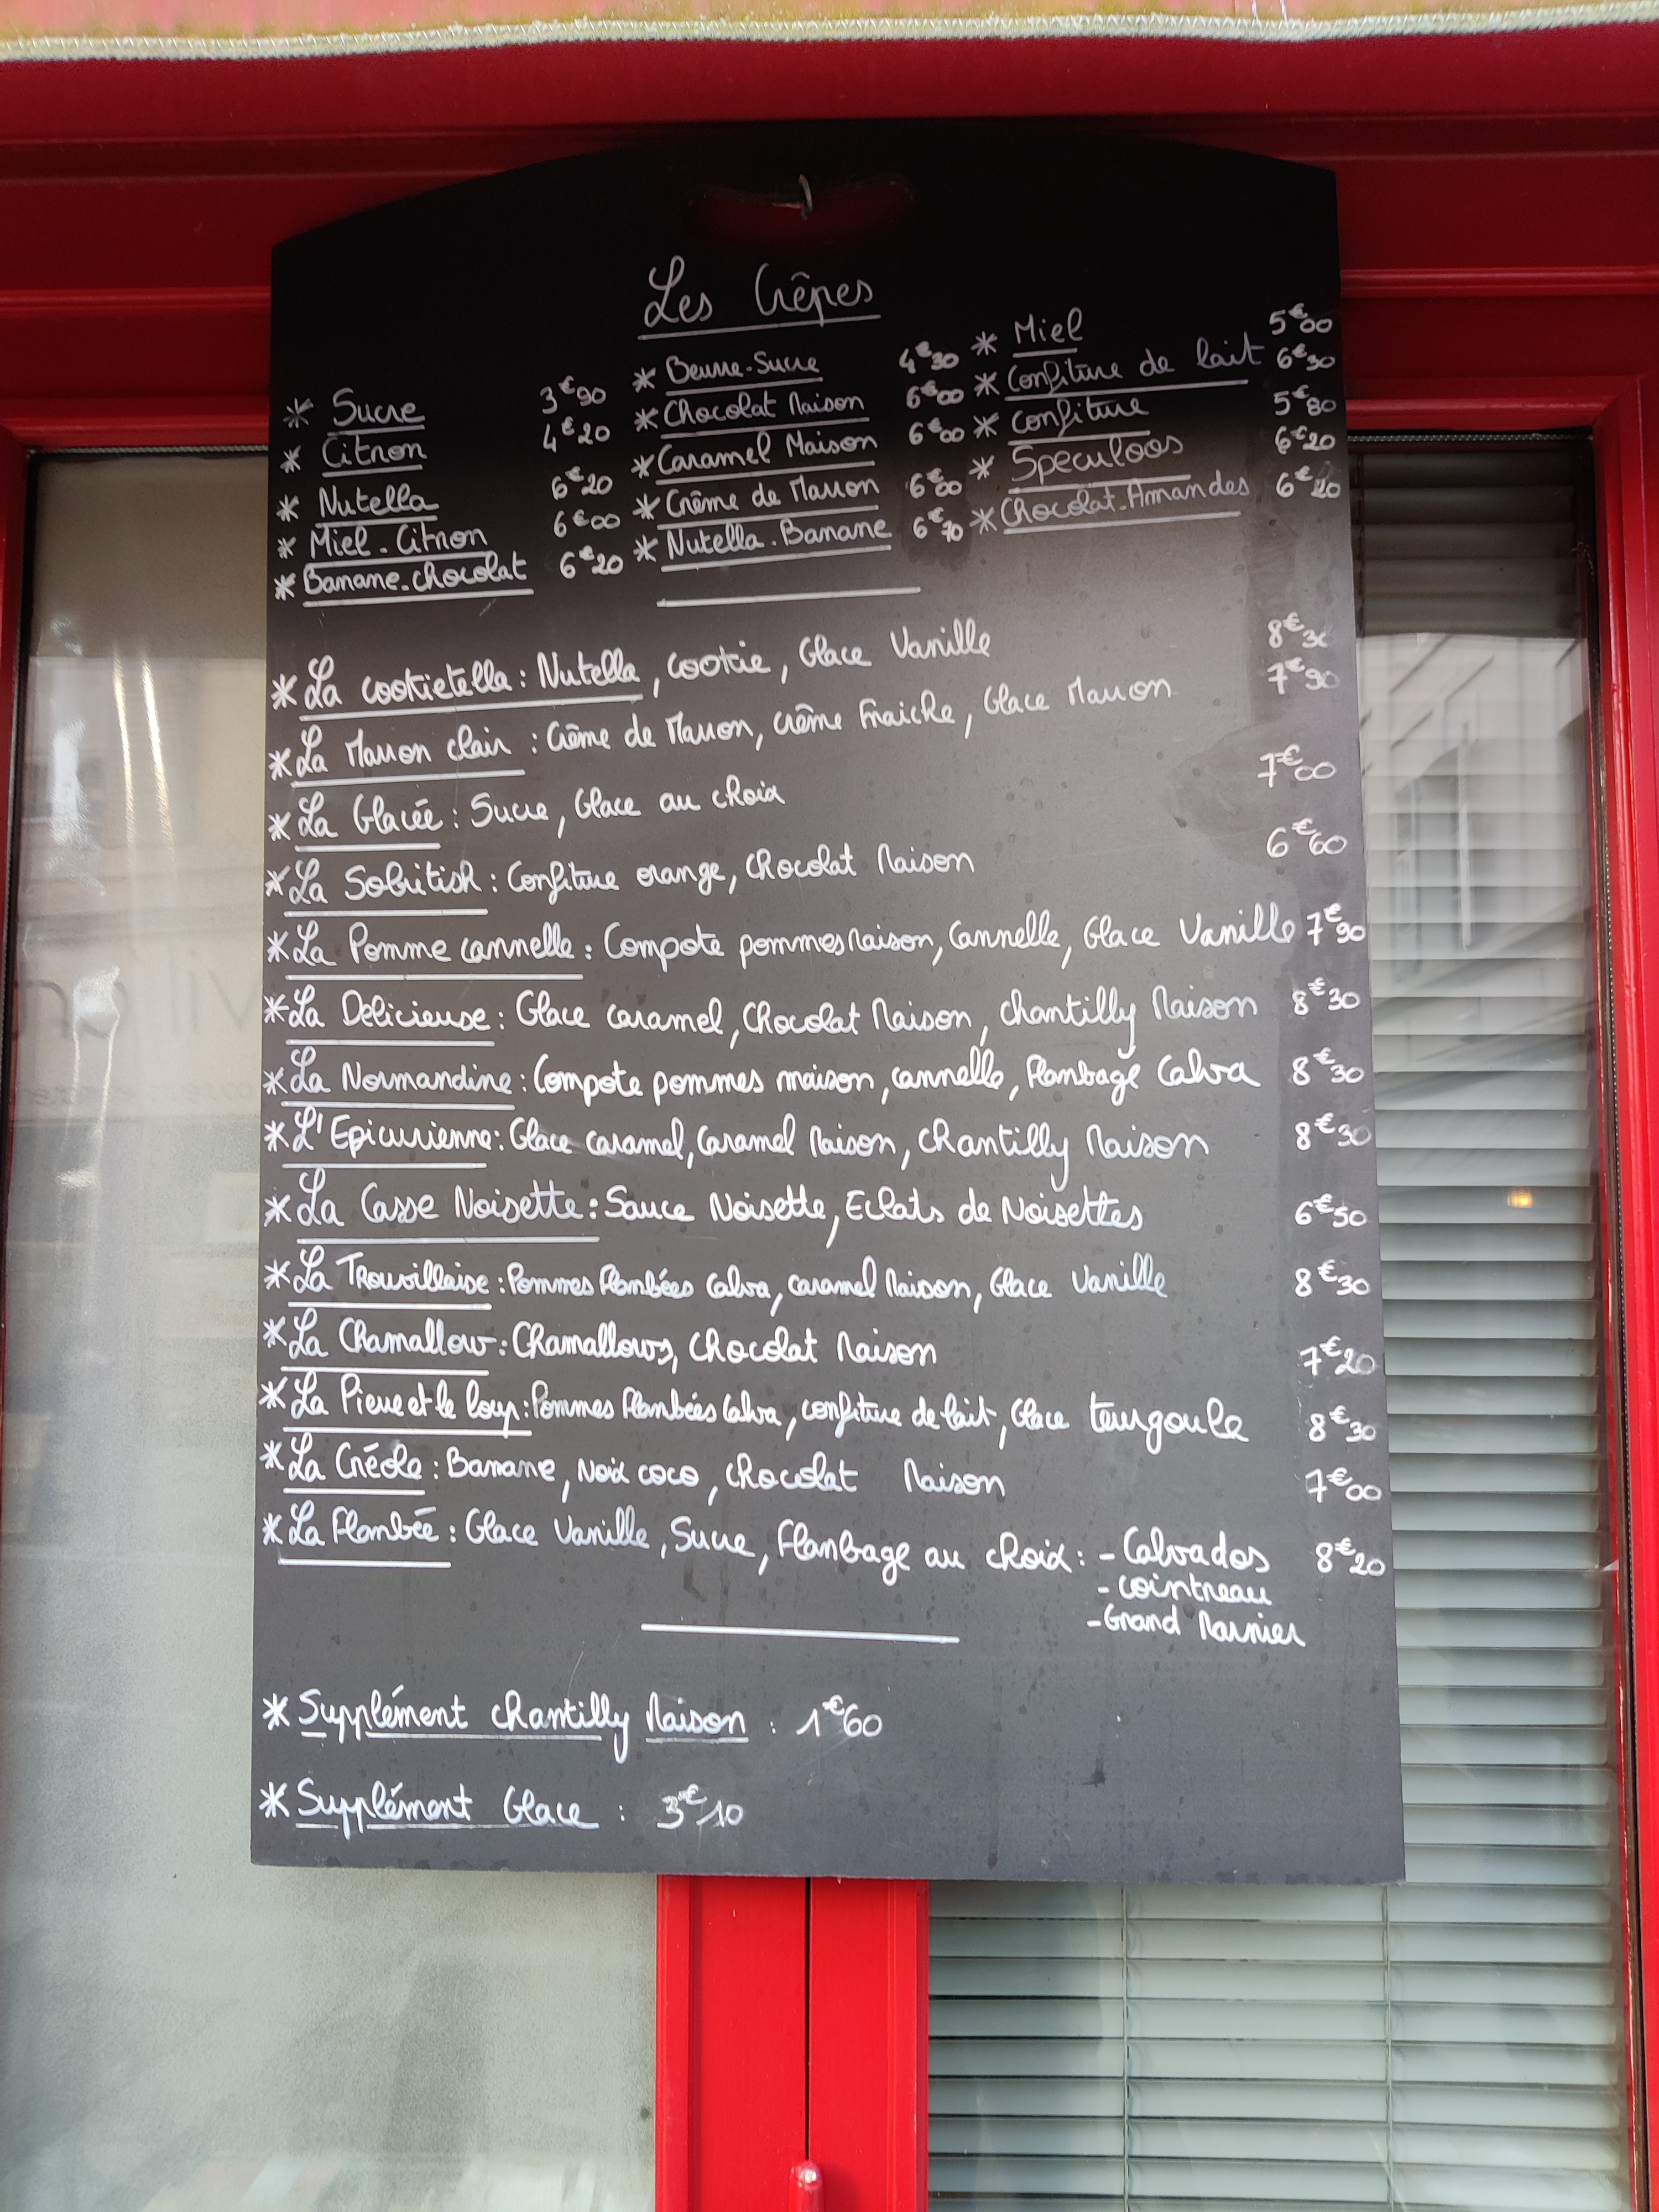 Les Crêpes
* Sucre 3€90
* Citron 4€20
* Nutella 6€20
* Miel-Citron 6€00
* Banane-chocolat 6€20
* Beurre-Sucre 4€30
* Chocolat Maison 6€00
* Caramel Maison 6€00
* Crème de Marron 6€00
* Nutella-Banane 6€70
* Miel 5€00
* Confiture de lait 6€30
* Confiture 5€80
* Speculoos 6€20
* Chocolat-Amandes 6€20
* La cookietella : Nutella, cookie, Glace Vanille 8€30
* La Marron clair : Crème de Marron, crème Fraiche, Glace Marron 7€90
* La Glacée : Sucre, Glace au choix 7€00
* La Sobritish : Confiture orange, Chocolat Maison 6€60
* La Pomme cannelle : Compote pommes Maison, Cannelle, Glace Vanille 7€90
* La Délicieuse : Glace caramel, Chocolat Maison, chantilly Maison 8€30
* La Normandine : Compote pommes maison, cannelle, Flambage Calva 8€30
* L'Epicurienne : Glace caramel, Caramel Maison, Chantilly Maison 8€30
* La Casse Noisette : Sauce Noisette, Eclats de Noisettes 6€50
* La Trouvillaise : Pommes Flambées Calva, caramel Maison, Glace Vanille 8€30
* La Chamallow : Chamallows, Chocolat Maison 7€20
* La Pierre et le loup : Pommes Flambées Calva, confiture de lait, Glace teurgoule 8€30
* La Créole : Banane, Noix coco, Chocolat Maison 7€00
* La Flambée : Glace Vanille, Sucre, Flambage au choix : - Calvados 8€20
- Cointreau
- Grand Marnier
* Supplément chantilly Maison : 1€60
* Supplément Glace : 3€10